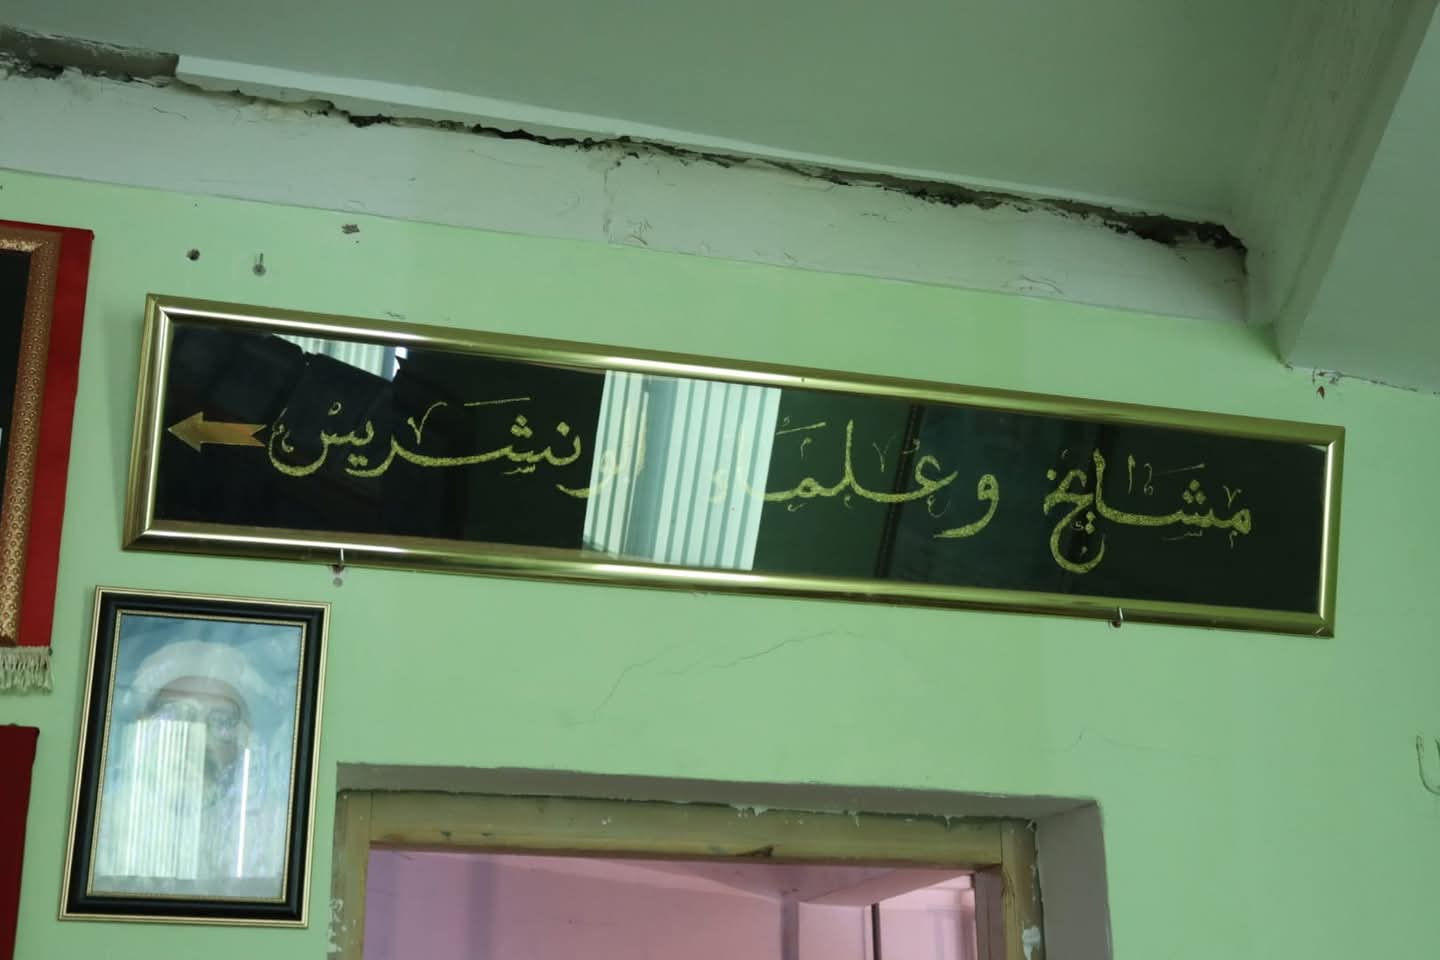 مشايخ وعُلمَاء الونشريسْ